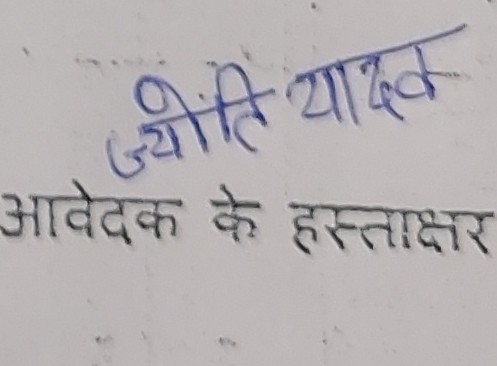 ज्योति यादव
आवेदक के हस्ताक्षर